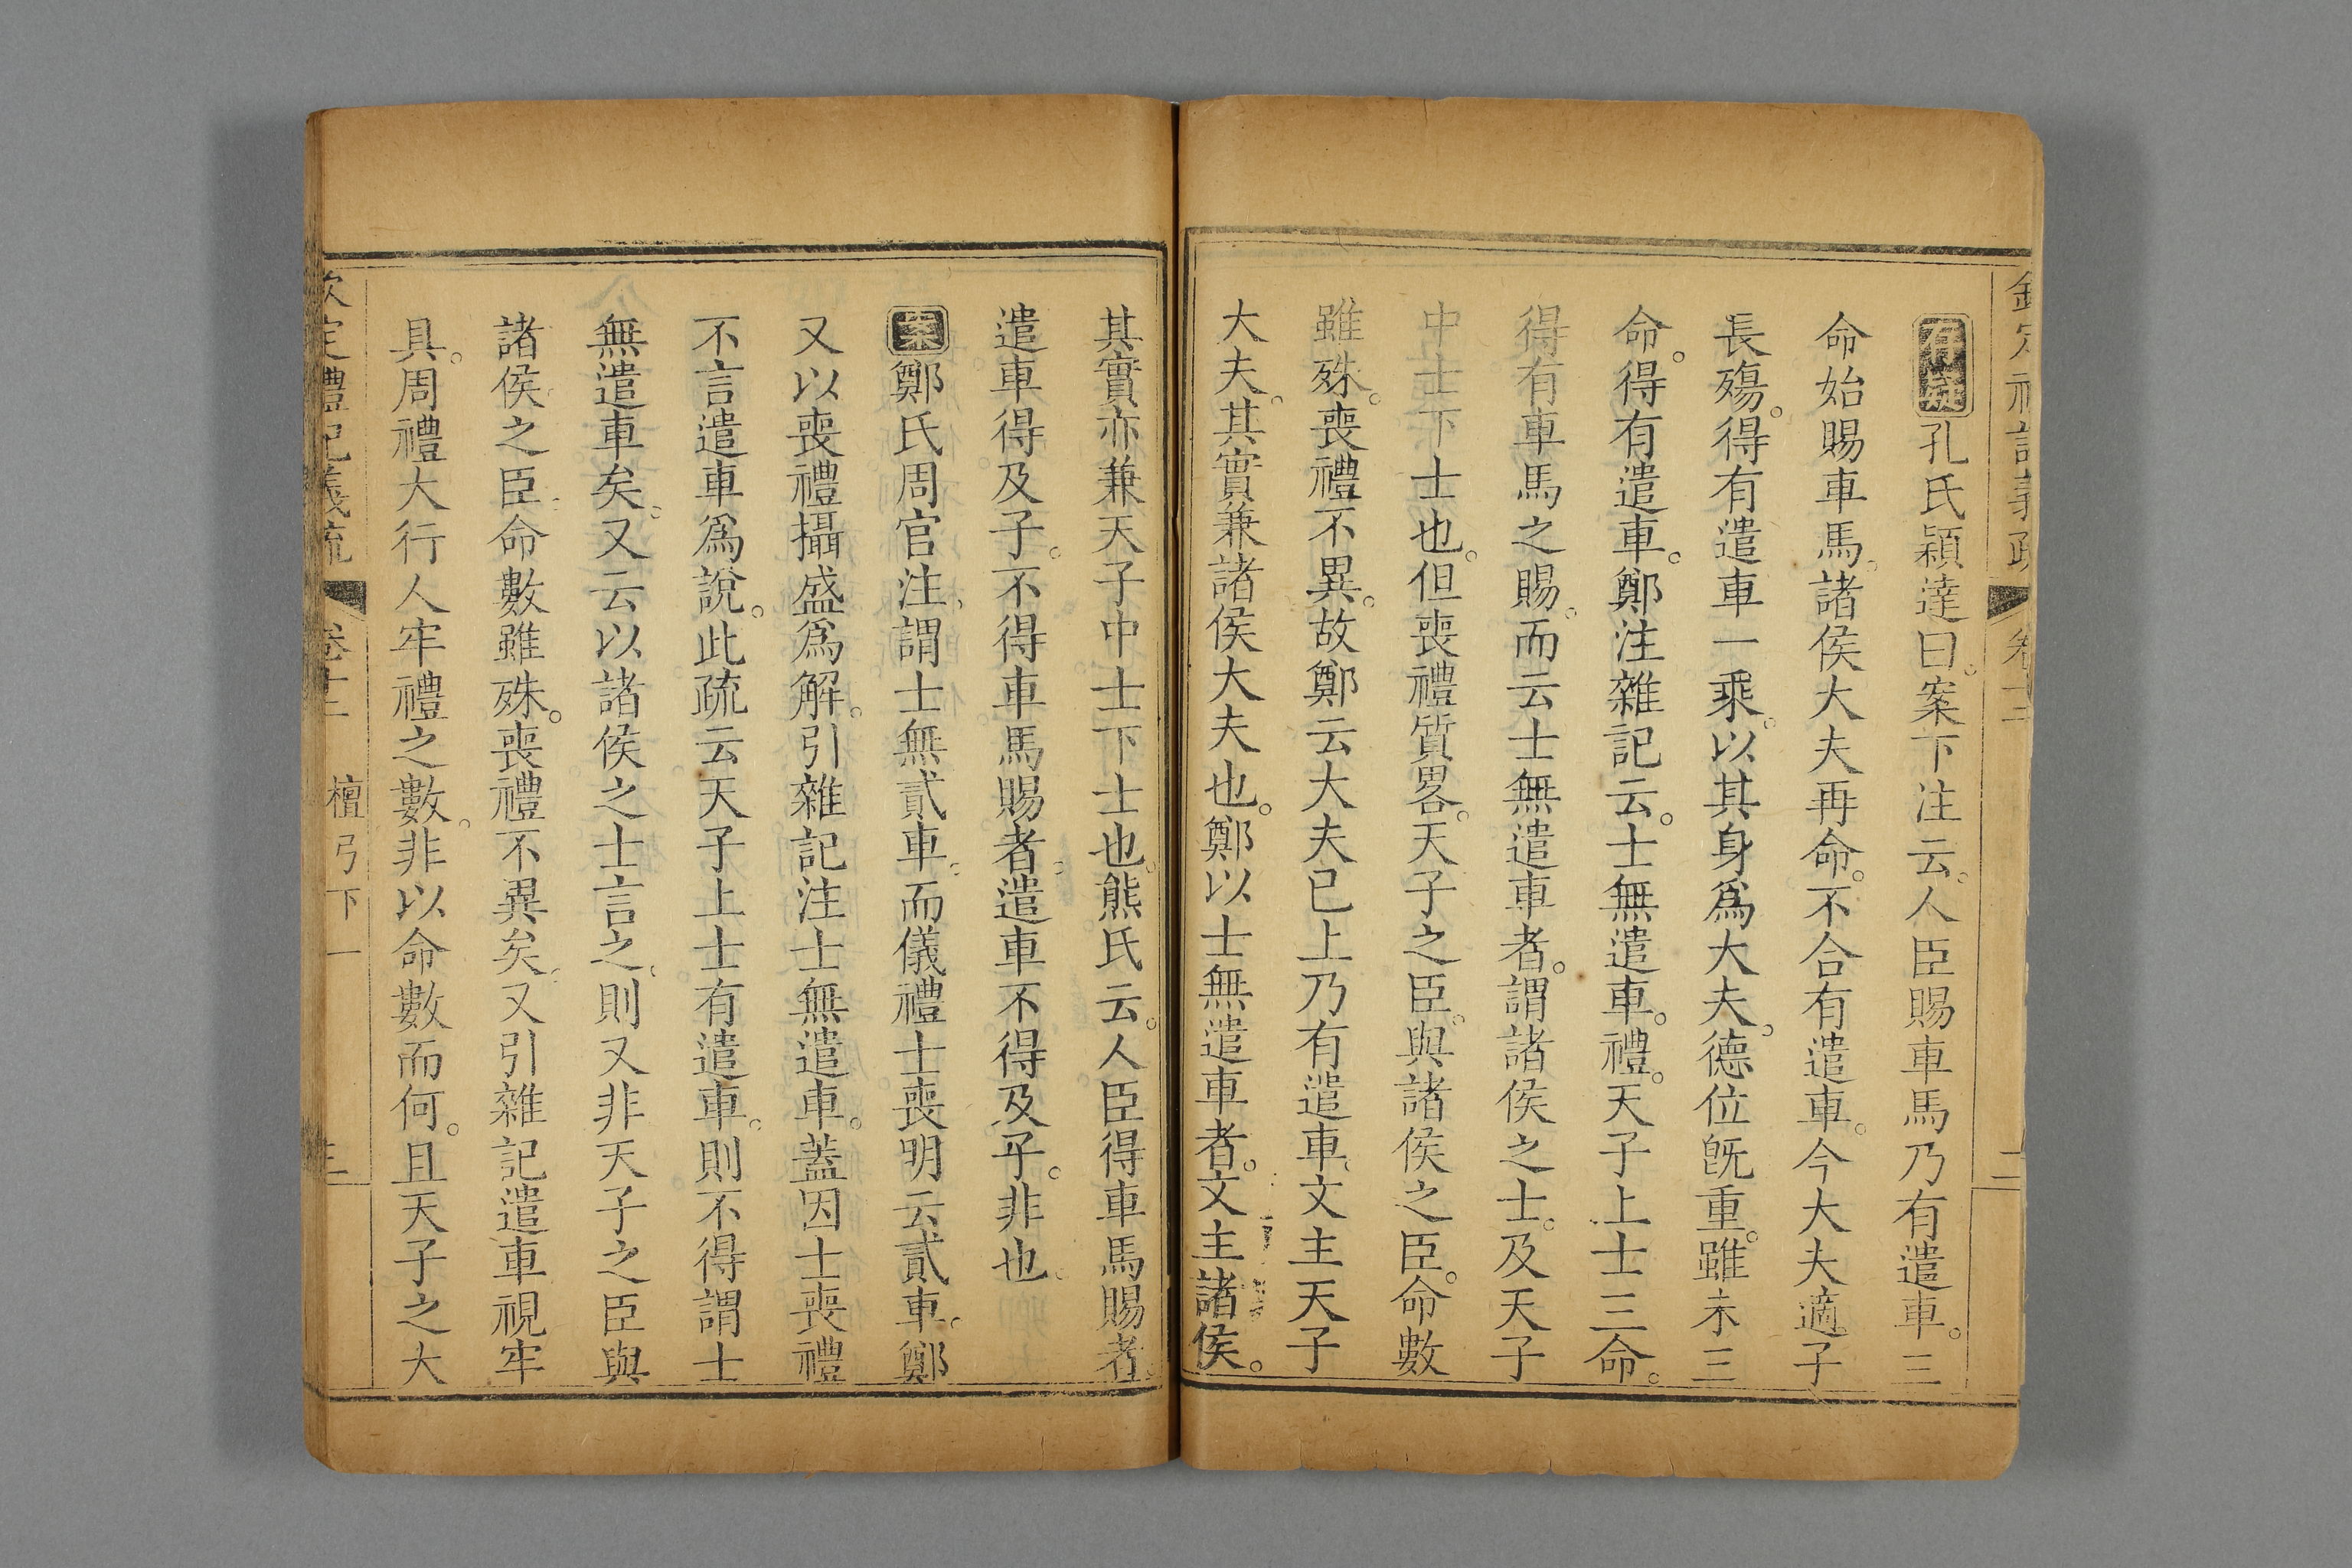 欽定禮記義疏 卷十三 二
存疑孔氏穎達曰。案下注云。人臣賜車馬乃有遣車。三
命始賜車馬。諸侯大夫再命。不合有遣車。今大夫適子
長殤。得有遣車一乘。以其身爲大夫。德位旣重。雖未三
命。得有遣車。鄭注雜記云。士無遣車。禮。天子上士三命。
得有車馬之賜。而云士無遣車者。謂諸侯之士。及天子
中士下士也。但喪禮質畧。天子之臣。與諸侯之臣。命數
雖殊。喪禮不異。故鄭云大夫已上乃有遣車、文主天子
大夫。其實兼諸侯大夫也。鄭以士無遣車者。文主諸侯。
其實亦兼天子中士下士也。熊氏云。人臣得車馬賜者。
遣車得及子。不得車馬賜者、遣車不得及乎。非也。
案鄭氏周官注、謂士無貳車、而儀禮士喪明云貳車。鄭
又以喪禮攝盛爲解。引雜記注士無遣車。蓋因士喪禮
不言遣車爲說。此疏云天子上士有遣車。則不得謂士
無遣車矣。又云以諸侯之士言之、則又非天子之臣與
諸侯之臣、命數雖殊。喪禮不異矣、又引雜記遣車視牢
具。周禮大行人牢禮之數。非以命數而何。且天子之大
欽定禮記義疏 卷十三 檀弓下一 三